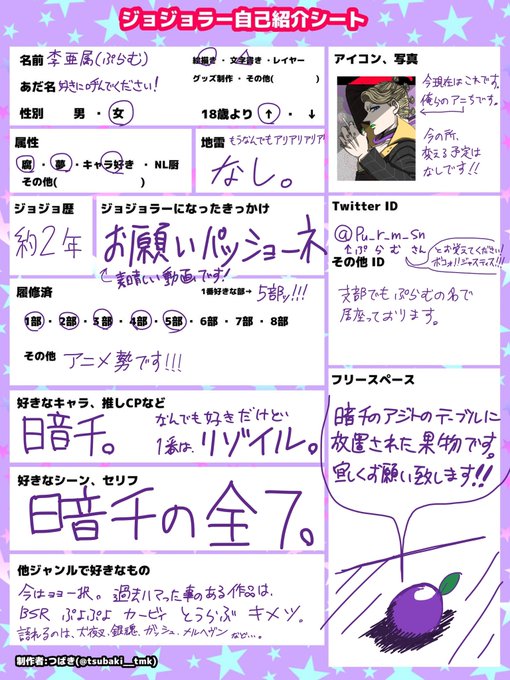 ジョジョラー自己紹介シート
名前 李亜属(ぷらむ)
あだ名 好きに呼んでください!
性別 男 ・ 女
絵描き ・ 文字書き ・ レイヤー
グッズ制作 ・ その他( )
18歳より ↑ ・ ↓
属性
腐 ・ 夢 ・ キャラ好き ・ NL厨
その他( )
地雷 もうなんでもアリアリアリアリ
なし。
ジョジョ歴
約2年
ジョジョラーになったきっかけ
お願いパッショーネ
↑素晴しい動画です!
履修済
1番好きな部→ 5部ッ!!!
1部 ・ 2部 ・ 3部 ・ 4部 ・ 5部 ・ 6部 ・ 7部 ・ 8部
その他 アニメ勢です!!!
好きなキャラ、推しCPなど
暗チ。
なんでも好きだけど
1番は、リゾイル。
好きなシーン、セリフ
暗チの全て。
他ジャンルで好きなもの
今はョョ一択。過去ハマった事のある作品は、
BSR ぷよぷよ カービィ とうらぶ キメツ。
語れるのは、犬夜叉、銀魂、ガッシュ、メルヘヴン など…。
制作者:つばき(@tsubaki__tmk)
アイコン、写真
今現在はこれです。
俺らのアニキです。
今の所、
変える予定は
なしです!!
Twitter ID
@Pu_r_m_sn
↑ぷ ら む さん
とお覚えてください!
ボコォ!!ジャスティス!!!
その他 ID
支部でもぷらむの名で
居座っております。
フリースペース
暗チのアジトのテーブルに
放置された果物です。
宜しくお願い致します!!